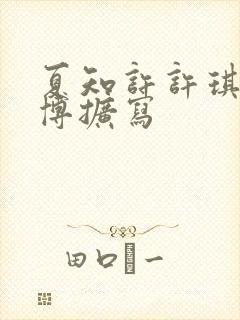 夏知許許琪
博擴寫
田口一